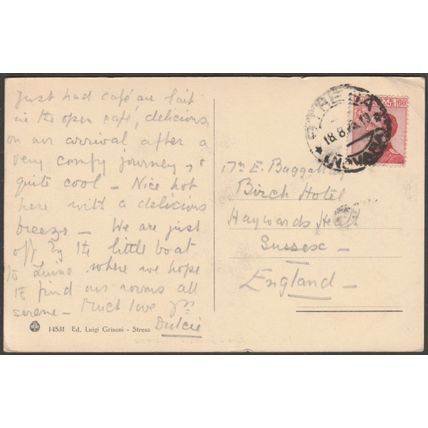 Just had café au lait
in the open café, delicious
on our arrival after a
very comfy journey,
quite cool - Nice hot
here with a delicious
breeze - We are just
off by the little boat
to where we hope
to find our rooms all
serene - Much love yrs
Dulcie
14531 Ed. Luigi Grisoni - Stresa
STRESA
18.8
E. Baggallay
Birch Hotel
Haywards Heath
Sussex
England